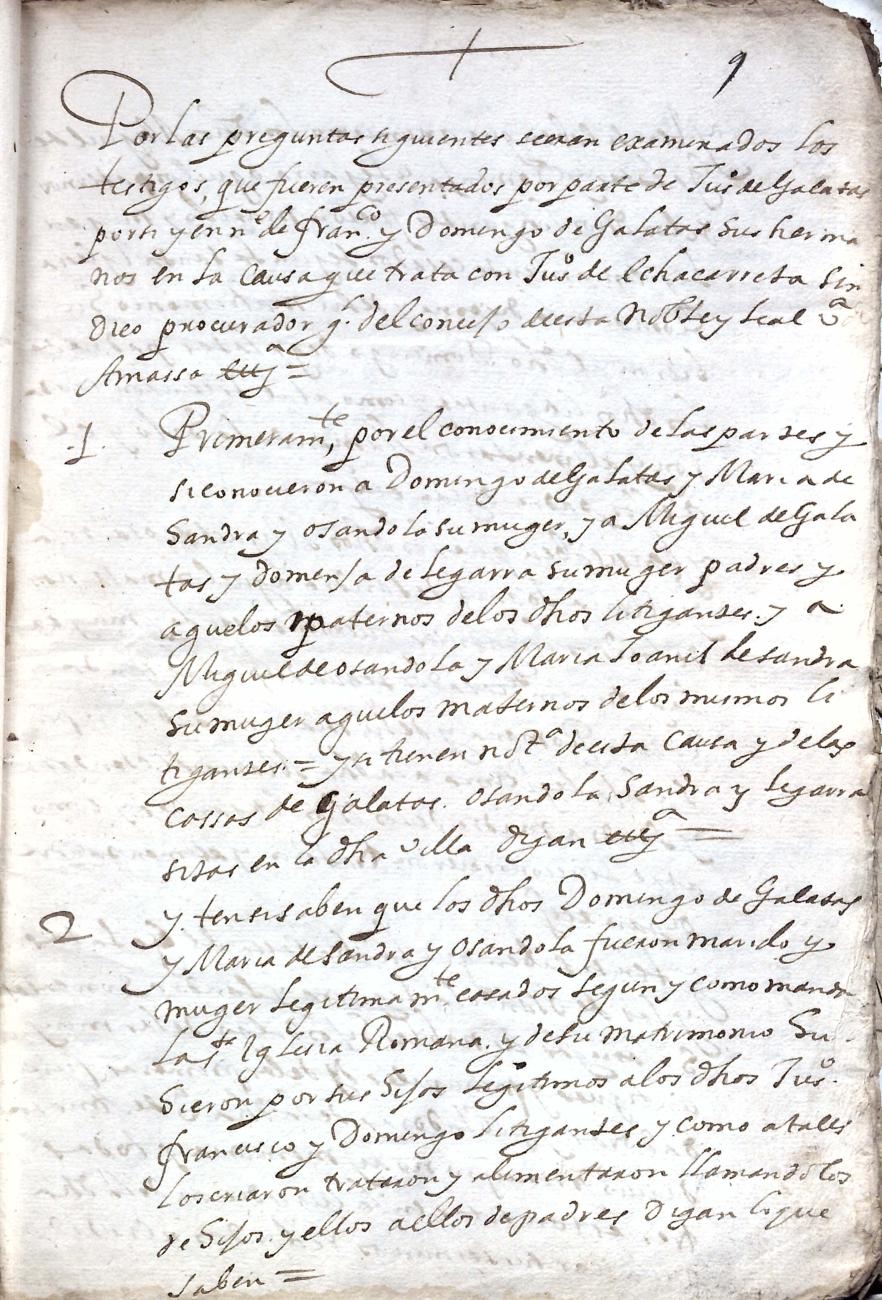 9
Por las preguntas siguientes seran examinados los
testigos, que fueren presentados por parte de Juº de Galatas
por si y en nᵉ de franᶜᵒ y Domingo de Galatas sus herma
nos en la Causa que trata con Juº de Echacarreta sin
dico procurador gˡ. del concejo de esta Noble y leal vᵃ
Amassa =
.1. Primeramᵗᵉ, por el conocimiento de las partes y
si conocieron a Domingo de Galatas y Maria de
Sandra y osandola su muger, y a Miguel de Gala
tas y Domenja de legarra su muger padres y
aguelos paternos de los dhos litigantes. y a
Miguel de osandola y Maria Joanil de sandra
su muger aguelos maternos de los mismos li
tigantes. = y si tienen notᵃ de esta Causa y de las
cassas de Galatas. osandola, Sandra y legarra
sitas en la dha villa digan =
2 y ten si saben que los dhos Domingo de Galatas
y Maria de sandra y osandola fueron marido y
muger legitimamᵗᵉ casados segun y como manda
la sᵗᵃ Iglesia Romana. y de su matrimonio hu
bieron por sus hijos legitimos a los dhos Juº.
francisco y Domingo litigantes y como a tales
los criaron trataron y alimentaron llamandolos
de hijos. y ellos a ellos de padres Digan lo que
saben =